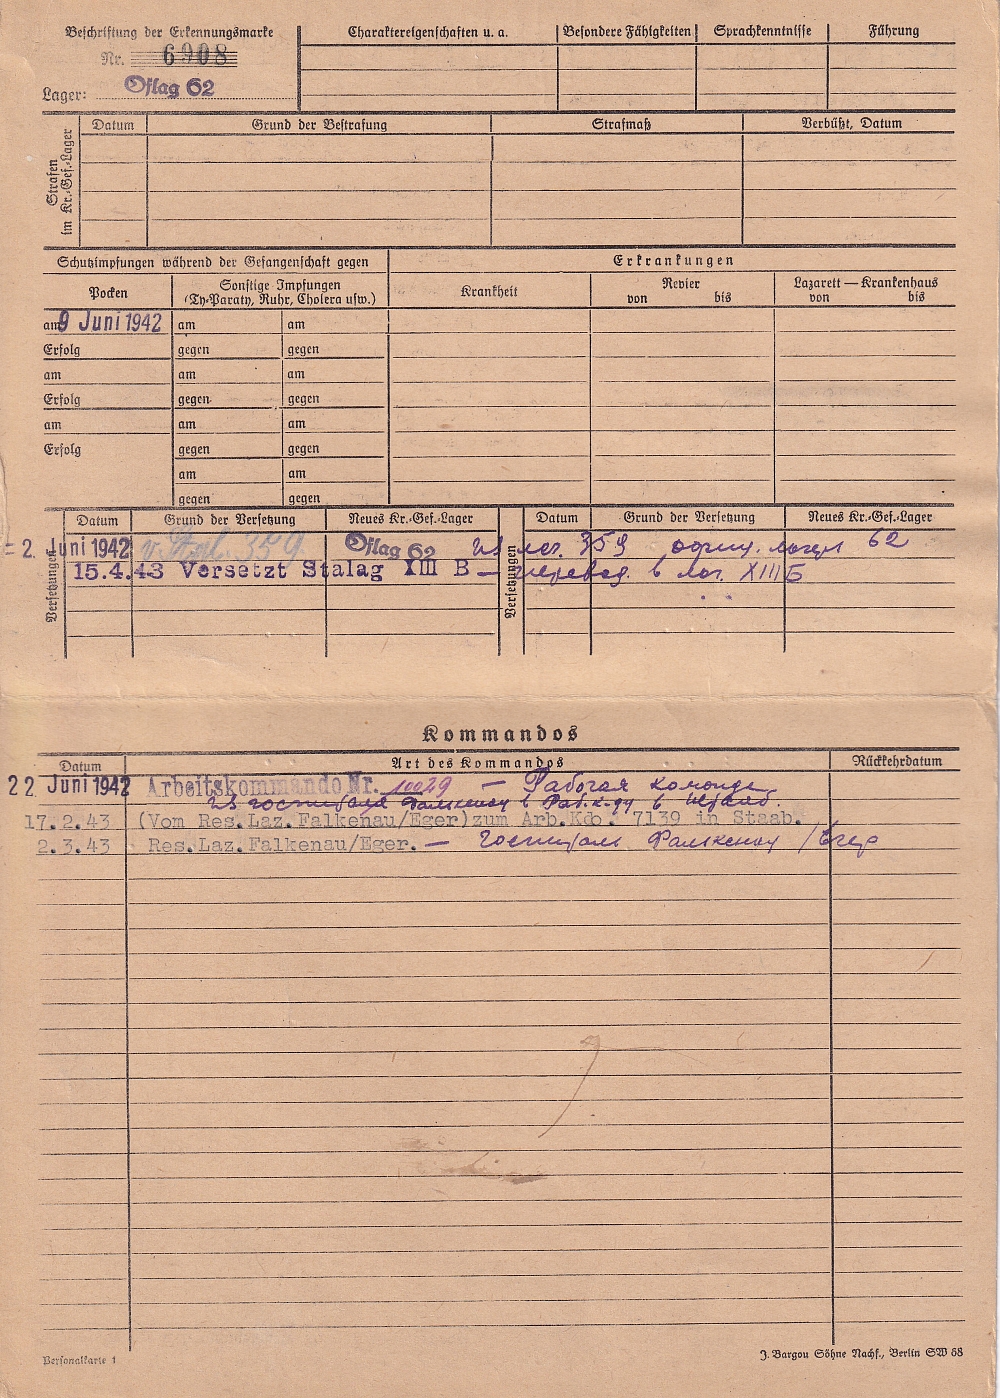 Beschriftung der Erkennungsmarke
Nr. 6908
Lager: Oflag 62
Charaktereigenschaften u. a.
Besondere Fähigkeiten
Sprachkenntnisse
Führung
Strafen im Kr.-Gef.-Lager
Datum
Grund der Bestrafung
Strafmaß
Verbüßt, Datum
Schutzimpfungen während der Gefangenschaft gegen
Erkrankungen
Pocken
Sonstige Impfungen
(Ty-Paraty, Ruhr, Cholera usw.)
Krankheit
Revier
von bis
Lazarett — Krankenhaus
von bis
am 9 Juni 1942 am am
Erfolg gegen gegen
am am am
Erfolg gegen gegen
am am am
Erfolg gegen gegen
am am
gegen gegen
Versetzungen
Datum
Grund der Versetzung
Neues Kr.-Gef.-Lager
Versetzungen
Datum
Grund der Versetzung
Neues Kr.-Gef.-Lager
= 2. Juni 1942 v. Stal. 359 Oflag 62 из лаг. 359 офиц. лагерь 62
15.4.43 Versetzt Stalag XIII B — перевед. в лаг. XIII Б
Kommandos
Datum
Art des Kommandos
Rückkehrdatum
22 Juni 1942 Arbeitskommando Nr. 10029 — Рабочая команда
из госпиталя Фалкенау в Раб. к-ду в Штааб.
17.2.43 (Vom Res.Laz.Falkenau/Eger)zum Arb.Kdo. 7139 in Staab.
2.3.43 Res.Laz.Falkenau/Eger. — Госпиталь Фалкенау / Егер
Personalkarte 1
J. Bargou Söhne Nachf., Berlin SW 68